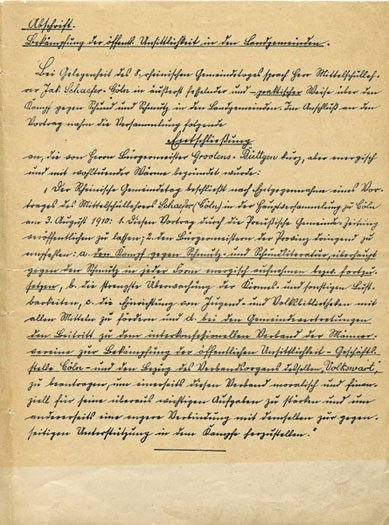 Abschrift.
Bekämpfung der öffentl. Unsittlichkeit in den Landgemeinden.
Bei Gelegenheit des Rheinischen Gemeindetages sprach Herr Mittelschulleh-
rer Jak. Schaefer-Cöln in äußerst fesselnder und praktischer Weise über den
Kampf gegen Schund und Schmutz in den Landgemeinden. Im Anschluß an den
Vortrag nahm die Versammlung folgende
Entschließung
an, die von Herrn Bürgermeister kurz, aber energisch
und mit wohltuender Wärme begründet wurde:
„Der Rheinische Gemeindetag beschließt nach Entgegennahme eines Vor-
trages des Mittelschullehrers Schaefer (Cöln) in der Hauptversammlung zu Cöln
am 3. August 1910: 1. diesen Vortrag durch die Preußische Gemeinde-Zeitung
veröffentlichen zu lassen; 2. den Bürgermeistern der Provinz dringend zu
empfehlen: a. den Kampf gegen Schmutz- und Schundliteratur, überhaupt
gegen den Schmutz in jeder Form energisch aufnehmen bzw. fortzu-
setzen, b. die strengste Überwachung der Kirmes- und sonstigen Lust-
barkeiten, c. die Einrichtung von Jugend- und Volksbibliotheken mit
allen Mitteln zu fördern und d. bei den Gemeindevertretungen
den Beitritt zu dem interkonfessionellen Verband der Männer-
vereine zur Bekämpfung der öffentlichen Unsittlichkeit - Geschäfts-
stelle Cöln - und den Bezug des Verbandsorganes desselben „Volkswart",
zu beantragen, um einerseits diesen Verband moralisch und finan-
ziell für seine überaus wichtigen Aufgaben zu stärken und um
andererseits eine engere Verbindung mit demselben zur gegen-
seitigen Unterstützung in dem Kampfe herzustellen."